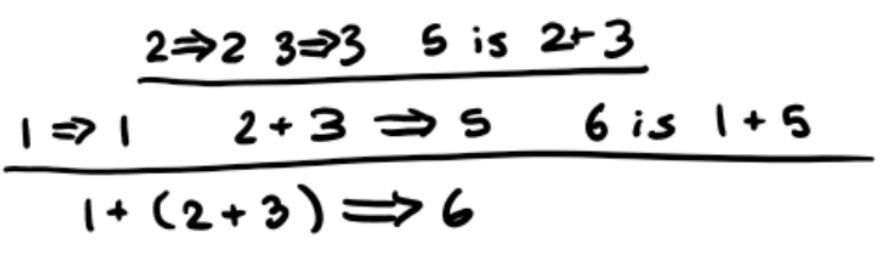 2⇒2 3⇒3 5 is 2+3
1⇒1 2+3⇒5 6 is 1+5
1+(2+3)⇒6